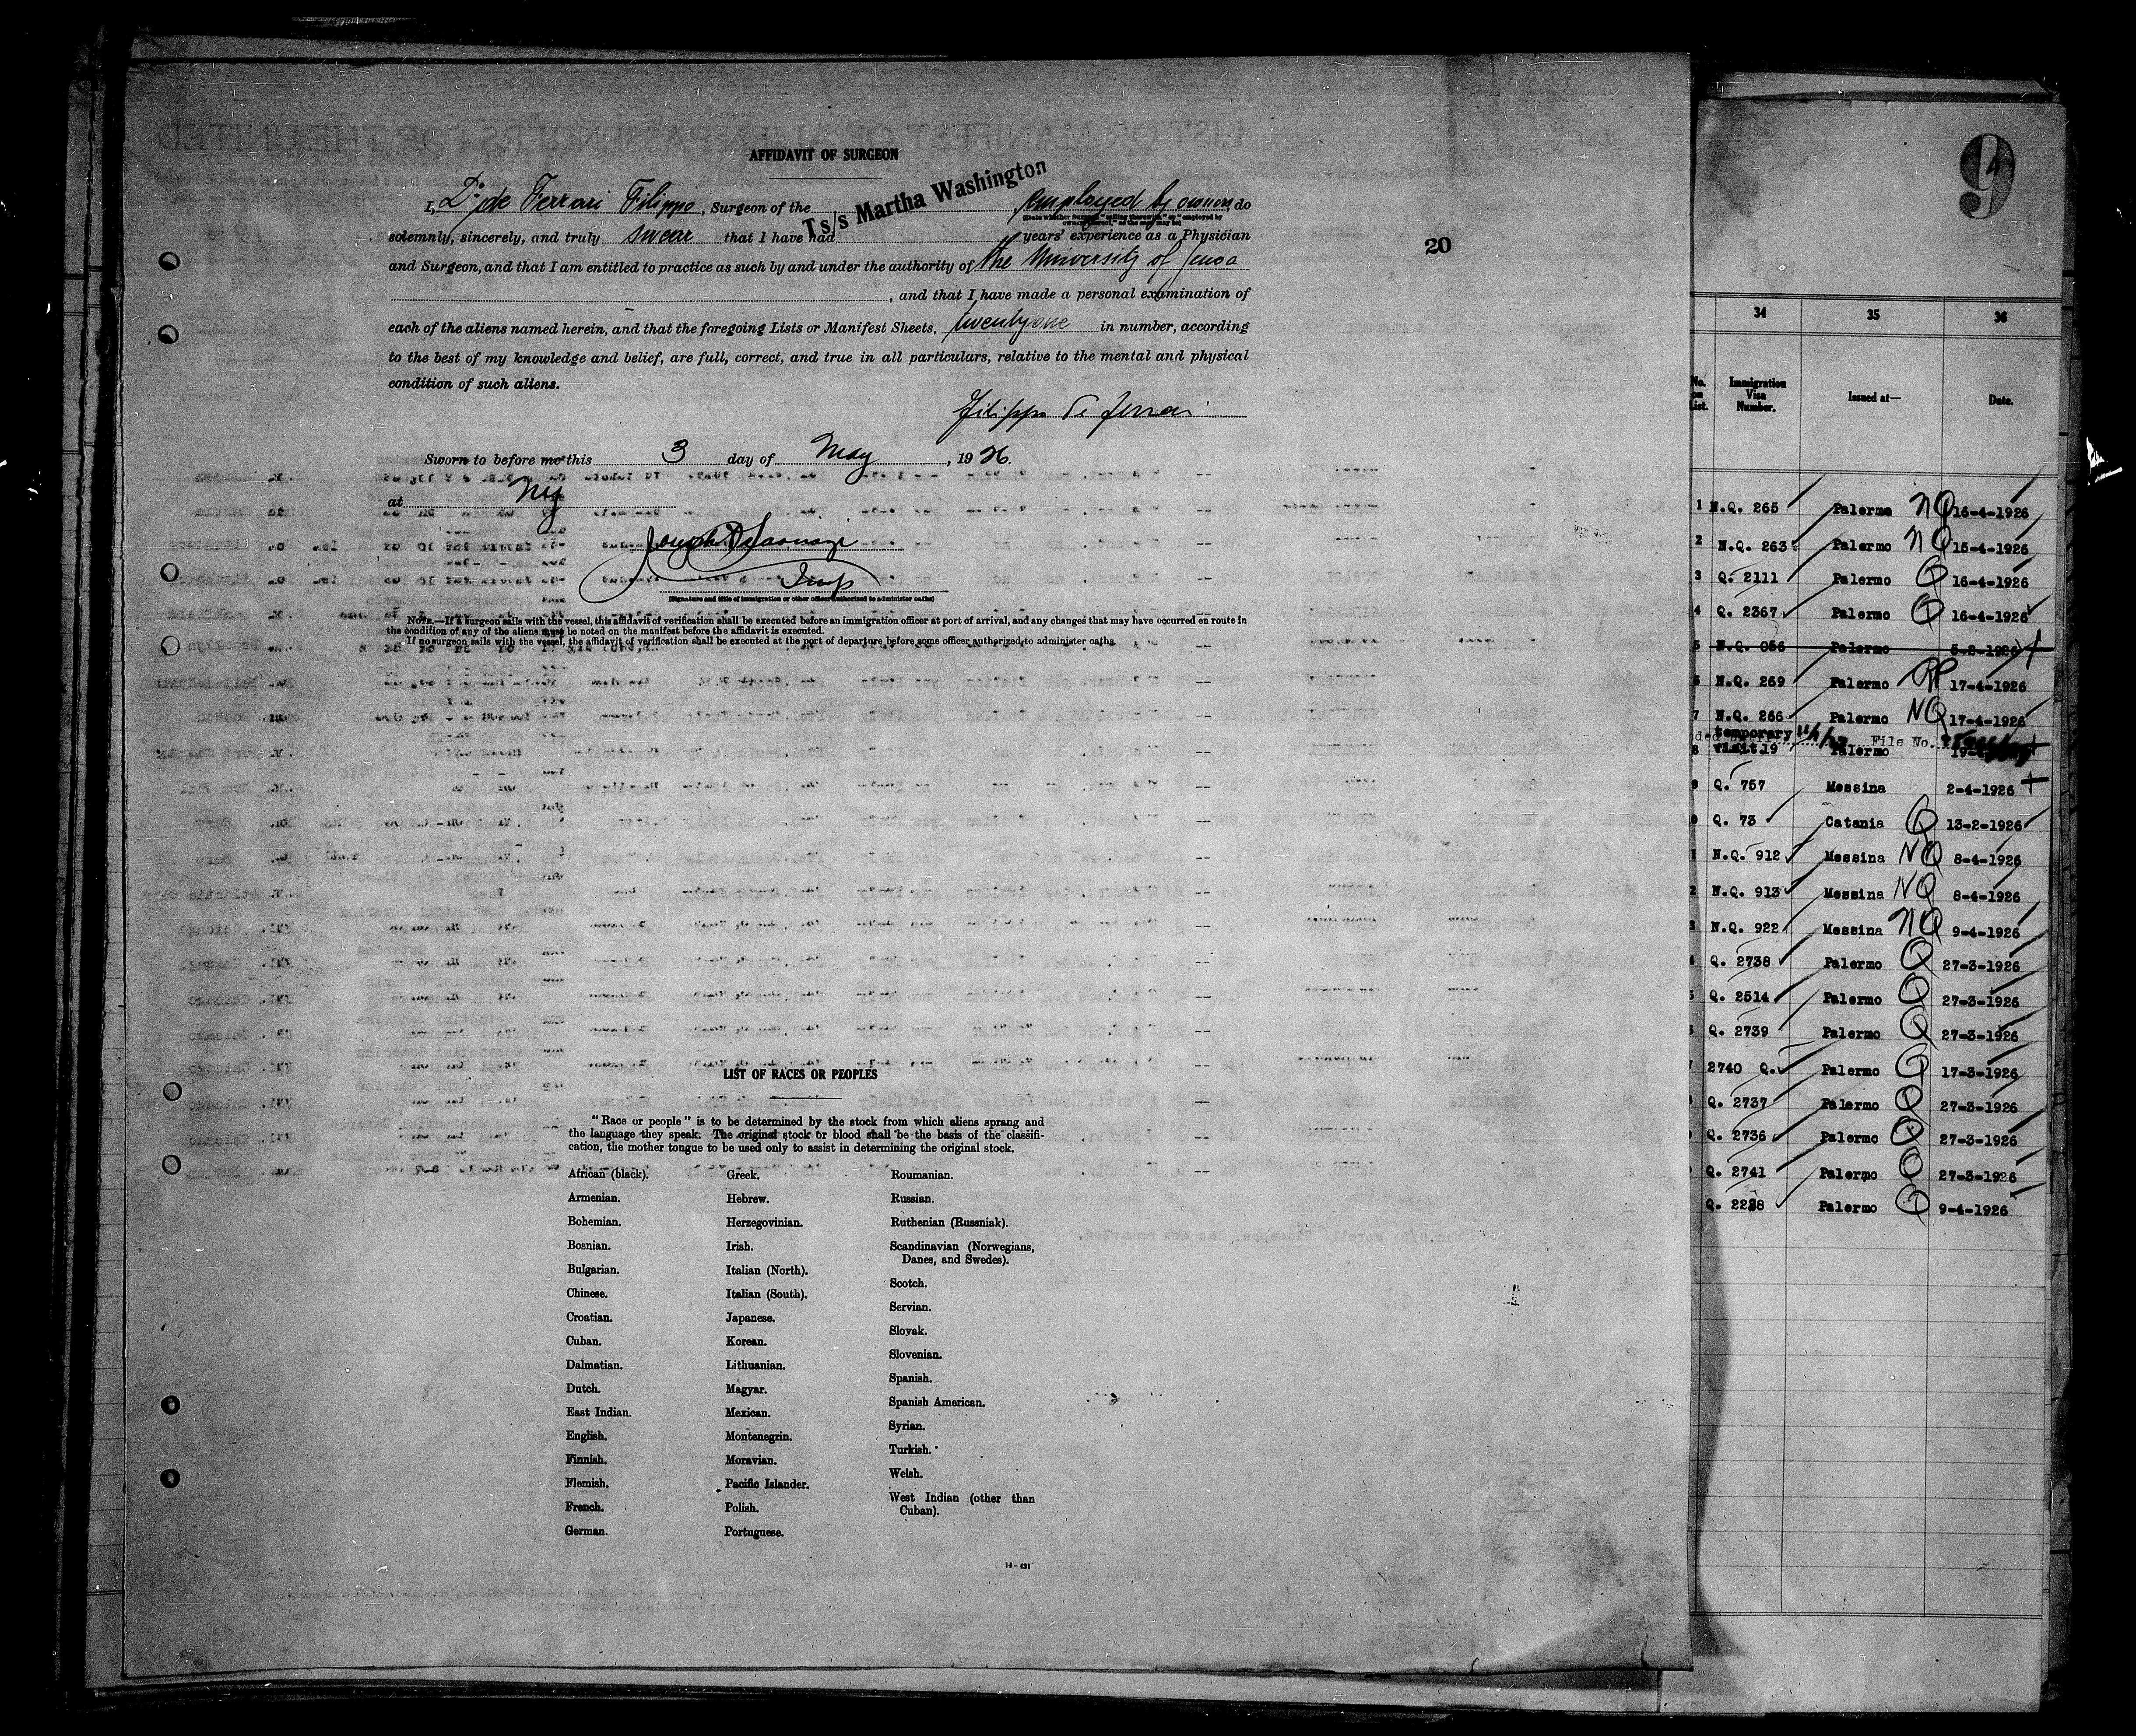 AFFIDAVIT OF SURGEON
I, Dr. de Ferrari Filippo, Surgeon of the T s/s Martha Washington employed by owners, do
(State whether Surgeon "sailing therewith" or "employed by owners thereof," as the case may be)
solemnly, sincerely, and truly swear that I have had years' experience as a Physician
and Surgeon, and that I am entitled to practice as such by and under the authority of the University of Genoa
, and that I have made a personal examination of
each of the aliens named herein, and that the foregoing Lists or Manifest Sheets, twenty one in number, according
to the best of my knowledge and belief, are full, correct, and true in all particulars, relative to the mental and physical
condition of such aliens.
Filippo De Ferrari
Sworn to before me this 3 day of May, 1926.
at NY
Insp
(Signature and title of immigration or other officer authorized to administer oaths)
NOTE.—If a surgeon sails with the vessel, this affidavit of verification shall be executed before an immigration officer at port of arrival, and any changes that may have occurred en route in
the condition of any of the aliens must be noted on the manifest before the affidavit is executed.
If no surgeon sails with the vessel, the affidavit of verification shall be executed at the port of departure before some officer authorized to administer oaths.
LIST OF RACES OR PEOPLES
"Race or people" is to be determined by the stock from which aliens sprang and
the language they speak. The original stock or blood shall be the basis of the classifi-
cation, the mother tongue to be used only to assist in determining the original stock.
African (black).
Armenian.
Bohemian.
Bosnian.
Bulgarian.
Chinese.
Croatian.
Cuban.
Dalmatian.
Dutch.
East Indian.
English.
Finnish.
Flemish.
French.
German.
Greek.
Hebrew.
Herzegovinian.
Irish.
Italian (North).
Italian (South).
Japanese.
Korean.
Lithuanian.
Magyar.
Mexican.
Montenegrin.
Moravian.
Pacific Islander.
Polish.
Portuguese.
Roumanian.
Russian.
Ruthenian (Russniak).
Scandinavian (Norwegians,
Danes, and Swedes).
Scotch.
Servian.
Slovak.
Slovenian.
Spanish.
Spanish American.
Syrian.
Turkish.
Welsh.
West Indian (other than
Cuban).
14—431
20
9
34 35 36
No. on List. Immigration Visa Number. Issued at— Date.
1 N.Q. 265 Palermo NQ 16-4-1926
2 N.Q. 263 Palermo NQ 15-4-1926
3 Q. 2111 Palermo Q 16-4-1926
4 Q. 2367 Palermo Q 16-4-1926
5 N.Q. 056 Palermo 5-2-1926
6 N.Q. 269 Palermo 17-4-1926
7 N.Q. 266 Palermo NQ 17-4-1926
temporary File No.
8 visit 19 Palermo
9 Q. 757 Messina 2-4-1926
0 Q. 73 Catania Q 13-2-1926
1 N.Q. 912 Messina NQ 8-4-1926
2 N.Q. 913 Messina NQ 8-4-1926
3 N.Q. 922 Messina NQ 9-4-1926
4 Q. 2738 Palermo Q 27-3-1926
5 Q. 2514 Palermo Q 27-3-1926
6 Q. 2739 Palermo Q 27-3-1926
7 2740 Q. Palermo Q 17-3-1926
8 Q. 2737 Palermo Q 27-3-1926
9 Q. 2736 Palermo Q 27-3-1926
0 Q. 2741 Palermo Q 27-3-1926
Q. 2238 Palermo Q 9-4-1926